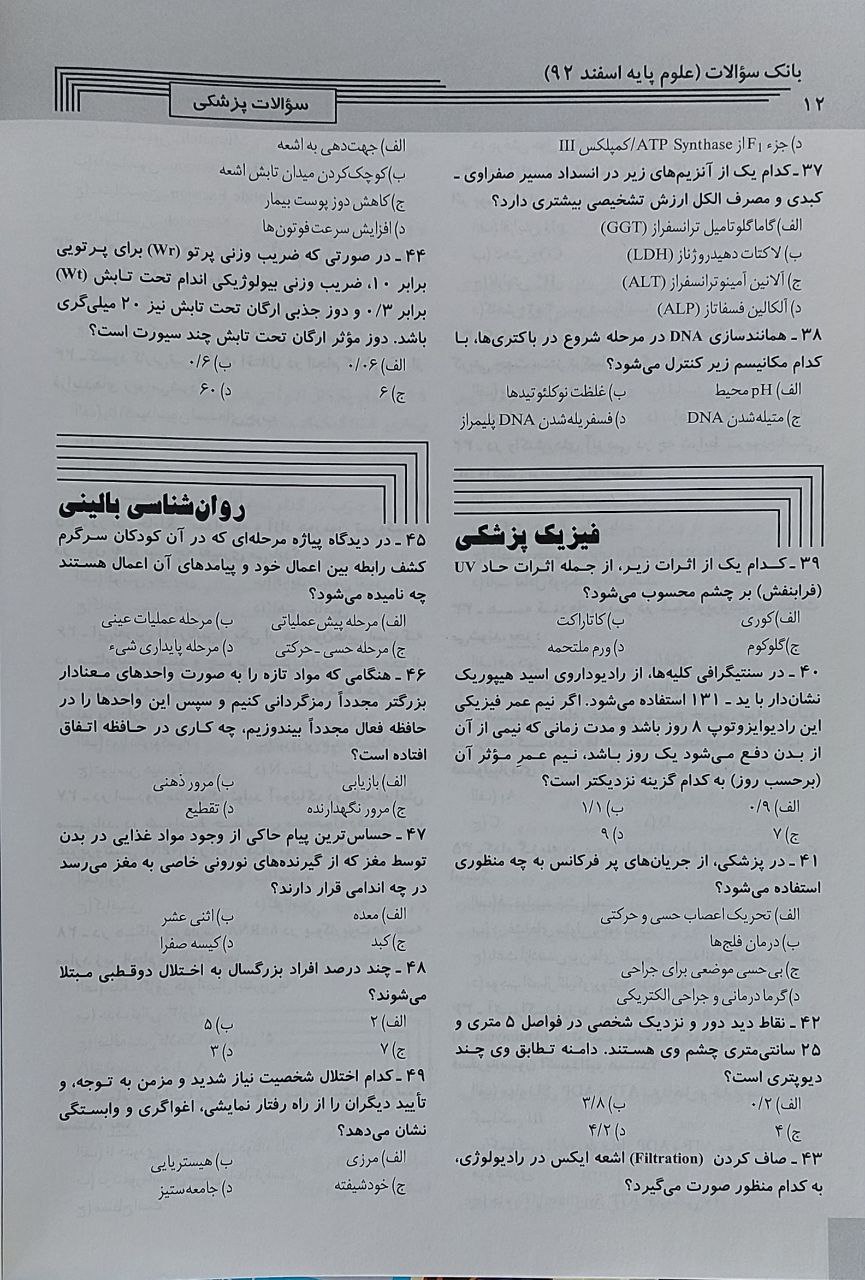 بانک سؤالات (علوم پایه اسفند ۹۲)
۱۲
سؤالات پزشکی
د) جزء F₁ از ATP Synthase/کمپلکس III
۳۷ ـ کدام یک از آنزیم‌های زیر در انسداد مسیر صفراوی ـ
کبدی و مصرف الکل ارزش تشخیصی بیشتری دارد؟
الف) گاماگلوتامیل ترانسفراز (GGT)
ب) لاکتات دهیدروژناز (LDH)
ج) آلانین آمینوترانسفراز (ALT)
د) آلکالین فسفاتاز (ALP)
۳۸ ـ همانندسازی DNA در مرحله شروع در باکتری‌ها، با
کدام مکانیسم زیر کنترل می‌شود؟
الف) pH محیط ب) غلظت نوکلئوتیدها
ج) متیله‌شدن DNA د) فسفریله‌شدن DNA پلیمراز
فیزیک پزشکی
۳۹ ـ کدام یک از اثرات زیر، از جمله اثرات حاد UV
(فرابنفش) بر چشم محسوب می‌شود؟
الف) کوری ب) کاتاراکت
ج) گلوکوم د) ورم ملتحمه
۴۰ ـ در سنتیگرافی کلیه‌ها، از رادیوداروی اسید هیپوریک
نشان‌دار با ید ـ ۱۳۱ استفاده می‌شود. اگر نیم عمر فیزیکی
این رادیوایزوتوپ ۸ روز باشد و مدت زمانی که نیمی از آن
از بدن دفع می‌شود یک روز باشد، نیم عمرِ مؤثر آن
(برحسب روز) به کدام گزینه نزدیکتر است؟
الف) ۰/۹ ب) ۱/۱
ج) ۷ د) ۹
۴۱ ـ در پزشکی، از جریان‌های پر فرکانس به چه منظوری
استفاده می‌شود؟
الف) تحریک اعصاب حسی و حرکتی
ب) درمان فلج‌ها
ج) بی‌حسی موضعی برای جراحی
د) گرما درمانی و جراحی الکتریکی
۴۲ ـ نقاط دید دور و نزدیک شخصی در فواصل ۵ متری و
۲۵ سانتی‌متری چشم وی هستند. دامنه تطابق وی چند
دیوپتری است؟
الف) ۰/۲ ب) ۳/۸
ج) ۴ د) ۴/۲
۴۳ ـ صاف کردن (Filtration) اشعه ایکس در رادیولوژی،
به کدام منظور صورت می‌گیرد؟
الف) جهت‌دهی به اشعه
ب) کوچک‌کردن میدان تابش اشعه
ج) کاهش دوز پوست بیمار
د) افزایش سرعت فوتون‌ها
۴۴ ـ در صورتی که ضریب وزنی پرتو (Wr) برای پرتویی
برابر ۱۰، ضریب وزنی بیولوژیکی اندام تحت تابش (Wt)
برابر ۰/۳ و دوز جذبی ارگان تحت تابش نیز ۲۰ میلی‌گری
باشد. دوز مؤثر ارگان تحت تابش چند سیورت است؟
الف) ۰/۰۶ ب) ۰/۶
ج) ۶ د) ۶۰
روان‌شناسی بالینی
۴۵ ـ در دیدگاه پیاژه مرحله‌ای که در آن کودکان سرگرم
کشف رابطه بین اعمال خود و پیامدهای آن اعمال هستند
چه نامیده می‌شود؟
الف) مرحله پیش‌عملیاتی ب) مرحله عملیات عینی
ج) مرحله حسی ـ حرکتی د) مرحله پایداری شیء
۴۶ ـ هنگامی که مواد تازه را به صورت واحدهای معنادار
بزرگتر مجدداً رمزگردانی کنیم و سپس این واحدها را در
حافظه فعال مجدداً بیندوزیم، چه کاری در حافظه اتفاق
افتاده است؟
الف) بازیابی ب) مرور ذهنی
ج) مرور نگهدارنده د) تقطیع
۴۷ ـ حساس‌ترین پیام حاکی از وجود مواد غذایی در بدن
توسط مغز که از گیرنده‌های نورونی خاصی به مغز می‌رسد
در چه اندامی قرار دارند؟
الف) معده ب) اثنی عشر
ج) کبد د) کیسه صفرا
۴۸ ـ چند درصد افراد بزرگسال به اختلال دوقطبی مبتلا
می‌شوند؟
الف) ۲ ب) ۵
ج) ۷ د) ۳
۴۹ ـ کدام اختلال شخصیت نیاز شدید و مزمن به توجه، و
تأیید دیگران را از راه رفتار نمایشی، اغواگری و وابستگی
نشان می‌دهد؟
الف) مرزی ب) هیستریایی
ج) خودشیفته د) جامعه‌ستیز